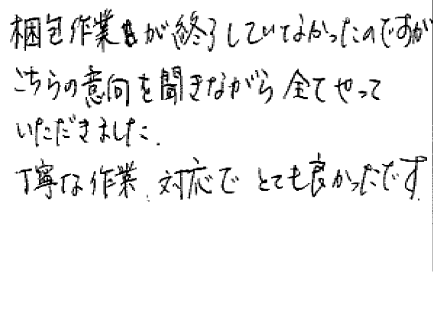 梱包作業が終了していなかったのですが
こちらの意向を聞きながら全てやって
いただきました.
丁寧な作業、対応でとても良かったです.